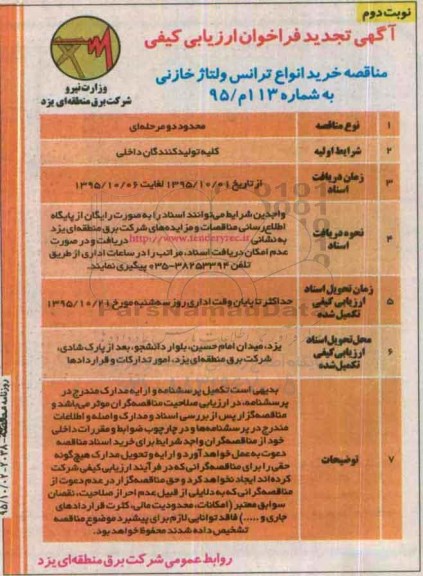 نوبت دوم
آگهی تجدید فراخوان ارزیابی کیفی
مناقصه خرید انواع ترانس ولتاژ خازنی
به شماره ۱۱۳م/۹۵
وزارت نیرو
شرکت برق منطقه‌ای یزد
۱ نوع مناقصه محدود دو مرحله‌ای
۲ شرایط اولیه کلیه تولیدکنندگان داخلی
۳ زمان دریافت اسناد از تاریخ ۱۳۹۵/۱۰/۰۱ لغایت ۱۳۹۵/۱۰/۰۶
۴ نحوه دریافت اسناد
واجدین شرایط می‌توانند اسناد را به صورت رایگان از پایگاه
اطلاع‌رسانی مناقصات و مزایده‌های شرکت برق منطقه‌ای یزد
به نشانی http://www.tenderyrec.ir دریافت و در صورت
عدم امکان دریافت اسناد، مراتب را در ساعات اداری از طریق
تلفن ۳۸۲۵۳۳۹۴-۰۳۵ پیگیری نمایند.
۵ زمان تحویل اسناد ارزیابی کیفی تکمیل شده
حداکثر تا پایان وقت اداری روز سه‌شنبه مورخ ۱۳۹۵/۱۰/۲۱
۶ محل تحویل اسناد ارزیابی کیفی تکمیل شده
یزد، میدان امام حسین، بلوار دانشجو، بعد از پارک شادی،
شرکت برق منطقه‌ای یزد، امور تدارکات و قراردادها
۷ توضیحات
بدیهی است تکمیل پرسشنامه و ارایه مدارک مندرج در
پرسشنامه، در ارزیابی صلاحیت مناقصه‌گران موثر می‌باشد و
مناقصه‌گزار پس از بررسی اسناد و مدارک واصله و اطلاعات
مندرج در پرسشنامه‌ها و در چارچوب ضوابط و مقررات داخلی
خود از مناقصه‌گران واجد شرایط برای خرید اسناد مناقصه
دعوت به عمل خواهد آورد و ارایه و تحویل مدارک هیچ‌گونه
حقی را برای مناقصه‌گرانی که در فرآیند ارزیابی کیفی شرکت
کرده‌اند ایجاد نخواهد کرد و حق مناقصه‌گزار در عدم دعوت از
مناقصه‌گرانی که به دلایلی از قبیل عدم احراز صلاحیت، نقصان
سوابق معتبر (امکانات، محدودیت مالی، کثرت قراردادهای
جاری و .....) فاقد توانایی لازم برای پیشبرد موضوع مناقصه
تشخیص داده شدند محفوظ خواهد بود.
روابط عمومی شرکت برق منطقه‌ای یزد
ParsNamadData